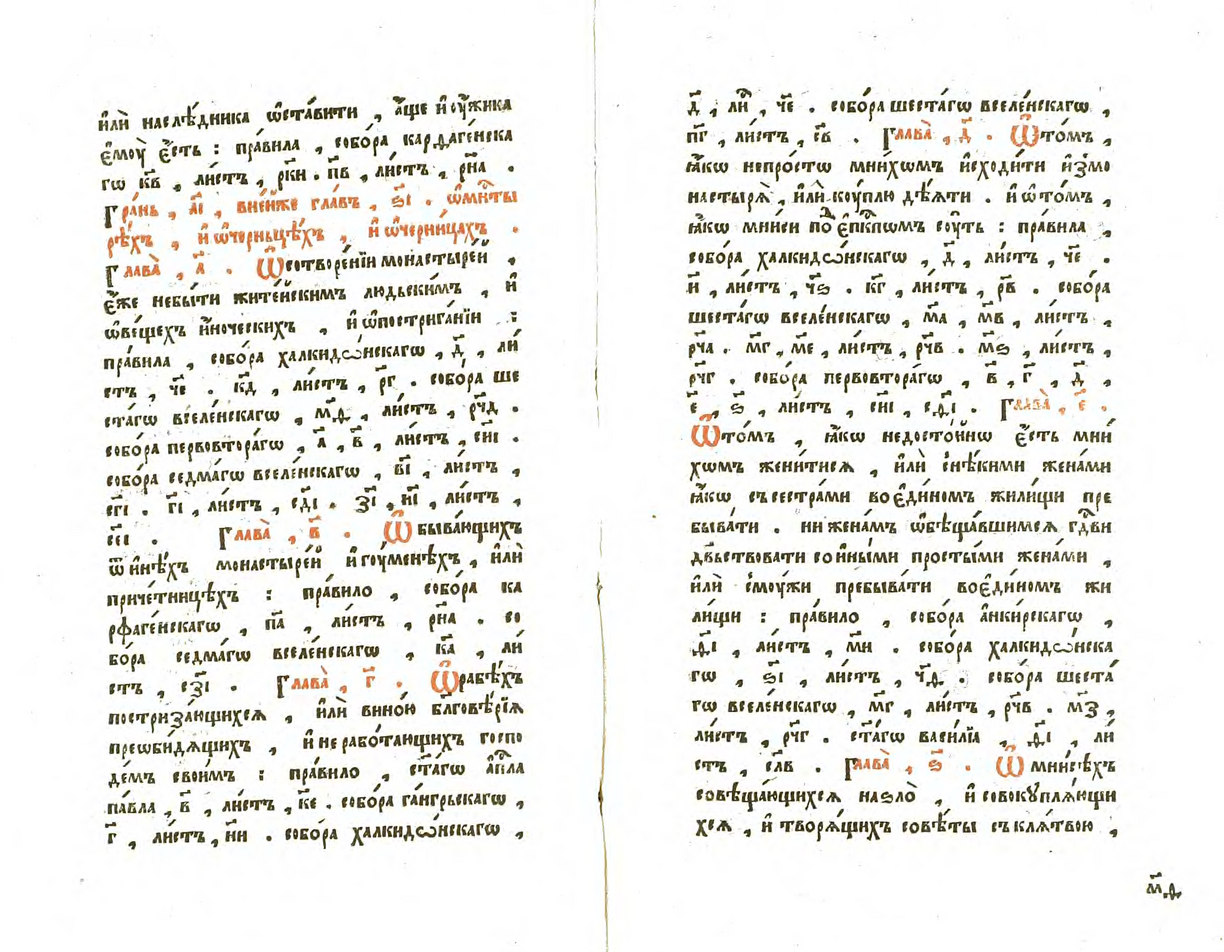 и҆лѝ наслѣ́дника ѡ҆ста́вити , а҆́ще и҆ оу҆́жика
є҆моу̀ є҆́сть : пра́вила , собо́ра кардаге́нска
гѡ к҃в , ли́стъ , рк҃и . п҃в , ли́стъ , рн҃а .
Гра́нь , а҃і , вне́йже гла́въ , ѕ҃і . ѡ҆мни́ты
рѣ́хъ , и҆ ѡ҆черньцѣ́хъ , и҆ ѡ҆черни́цахъ .
Глава̀ , а҃ . Ѡ҆сотворе́нїи монастыре́й ,
є҆́же небы́ти жите́йскимъ людьскимъ , и҆
ѡ҆ве́щехъ и҆́ноческихъ , и҆ ѡ҆пострига́нїи :
пра́вила , собо́ра халкидѡ́нскагѡ , д҃ , ли́
стъ , ч҃е . к҃д , ли́стъ , р҃г . собо́ра ше
ста́гѡ вселе́нскагѡ , м҃ѳ , ли́стъ , рч҃д .
собо́ра первовтора́гѡ , а҃ , в҃ , ли́стъ , сн҃і .
собо́ра седма́гѡ вселе́нскагѡ , в҃і , ли́стъ ,
сг҃і . г҃і , ли́стъ , сд҃і . з҃і , н҃і , ли́стъ ,
се҃і . Глава̀ , в҃ . Ѡ҆ быва́ющихъ
ѿ и҆нѣ́хъ монастыре́й и҆гоу́менѣхъ , и҆лѝ
приче́тницѣхъ : пра́вило , собо́ра ка
рфаге́нскагѡ , п҃а , ли́стъ , рн҃а . со
бо́ра седма́гѡ вселе́нскагѡ , к҃а , ли́
стъ , сз҃і . Глава̀ , г҃ . Ѡ҆рабѣ́хъ
постриза́ющихсѧ , и҆лѝ вино́ю бл҃говѣ́рїѧ
преѡби́дѧщихъ , и҆ не рабо́тающихъ госпо
де́мъ свои́мъ : пра́вило , ст҃а́гѡ а҆пⷭ҇ла
па́вла , в҃ , ли́стъ , к҃е . собо́ра га́нгрьскагѡ ,
г҃ , ли́стъ , н҃и . собо́ра халкидѡ́нскагѡ ,
д҃ , ли́ⷭ , ч҃е . собо́ра шеста́гѡ вселе́нскагѡ ,
п҃г , ли́стъ , с҃в . Глава̀ , д҃ . Ѡ҆то́мъ ,
ꙗ҆́кѡ непро́стѡ мни́хѡмъ и҆сходи́ти и҆змо
настырѧ̀ , и҆лѝ коу́плю дѣ́ѧти . и҆ ѡ҆то́мъ ,
ꙗ҆́кѡ мни́си под̾ є҆пⷭ҇кпѡмъ соу́ть : пра́вила ,
собо́ра халкидѡ́нскагѡ , д҃ , ли́стъ , ч҃е .
и҃ , ли́стъ , ч҃ѕ . к҃г , ли́стъ , р҃в . собо́ра
шеста́гѡ вселе́нскагѡ , м҃а , м҃в , ли́стъ ,
рч҃а . м҃г , м҃е , ли́стъ , рч҃в . м҃ѕ , ли́стъ ,
рч҃г . собо́ра первовтора́гѡ , в҃ , г҃ , д҃ ,
є҃ , ѕ҃ , ли́стъ , сн҃і , сѳ҃і . Глава̀ , є҃ .
Ѡ҆то́мъ , ꙗ҆́кѡ недосто́йнѡ є҆́сть мни́
хѡмъ жени́тисѧ , и҆лѝ снѣ́кими жена́ми
ꙗ҆́кѡ съсестра́ми воє҆ди́номъ жили́щи пре
быва́ти . ни жена́мъ ѡ҆бѣща́вшимсѧ гдⷭ҇ви
двⷭ҇ьствовати со и҆ны́ми просты́ми жена́ми ,
и҆лѝ смоу́жи пребыва́ти воє҆ди́номъ жи
ли́щи : пра́вило , собо́ра а҆нки́рскагѡ ,
ѳ҃і , ли́стъ , м҃и . собо́ра халкидѡ́нска
гѡ , ѕ҃і , ли́стъ , ч҃ѳ . собо́ра шеста́
гѡ вселе́нскагѡ , м҃г , ли́стъ , рч҃в . м҃з ,
ли́стъ , рч҃г . ст҃а́гѡ васи́лїа , ѳ҃і , ли́
стъ , сл҃в . Глава̀ , ѕ҃ . Ѡ҆ мни́сѣхъ
совѣща́ющихсѧ наѕло̀ , и҆ совокуплѧ́ющи
хсѧ , и҆ творѧ́щихъ совѣ́ты съ клѧ́твою ,
м҃ѳ